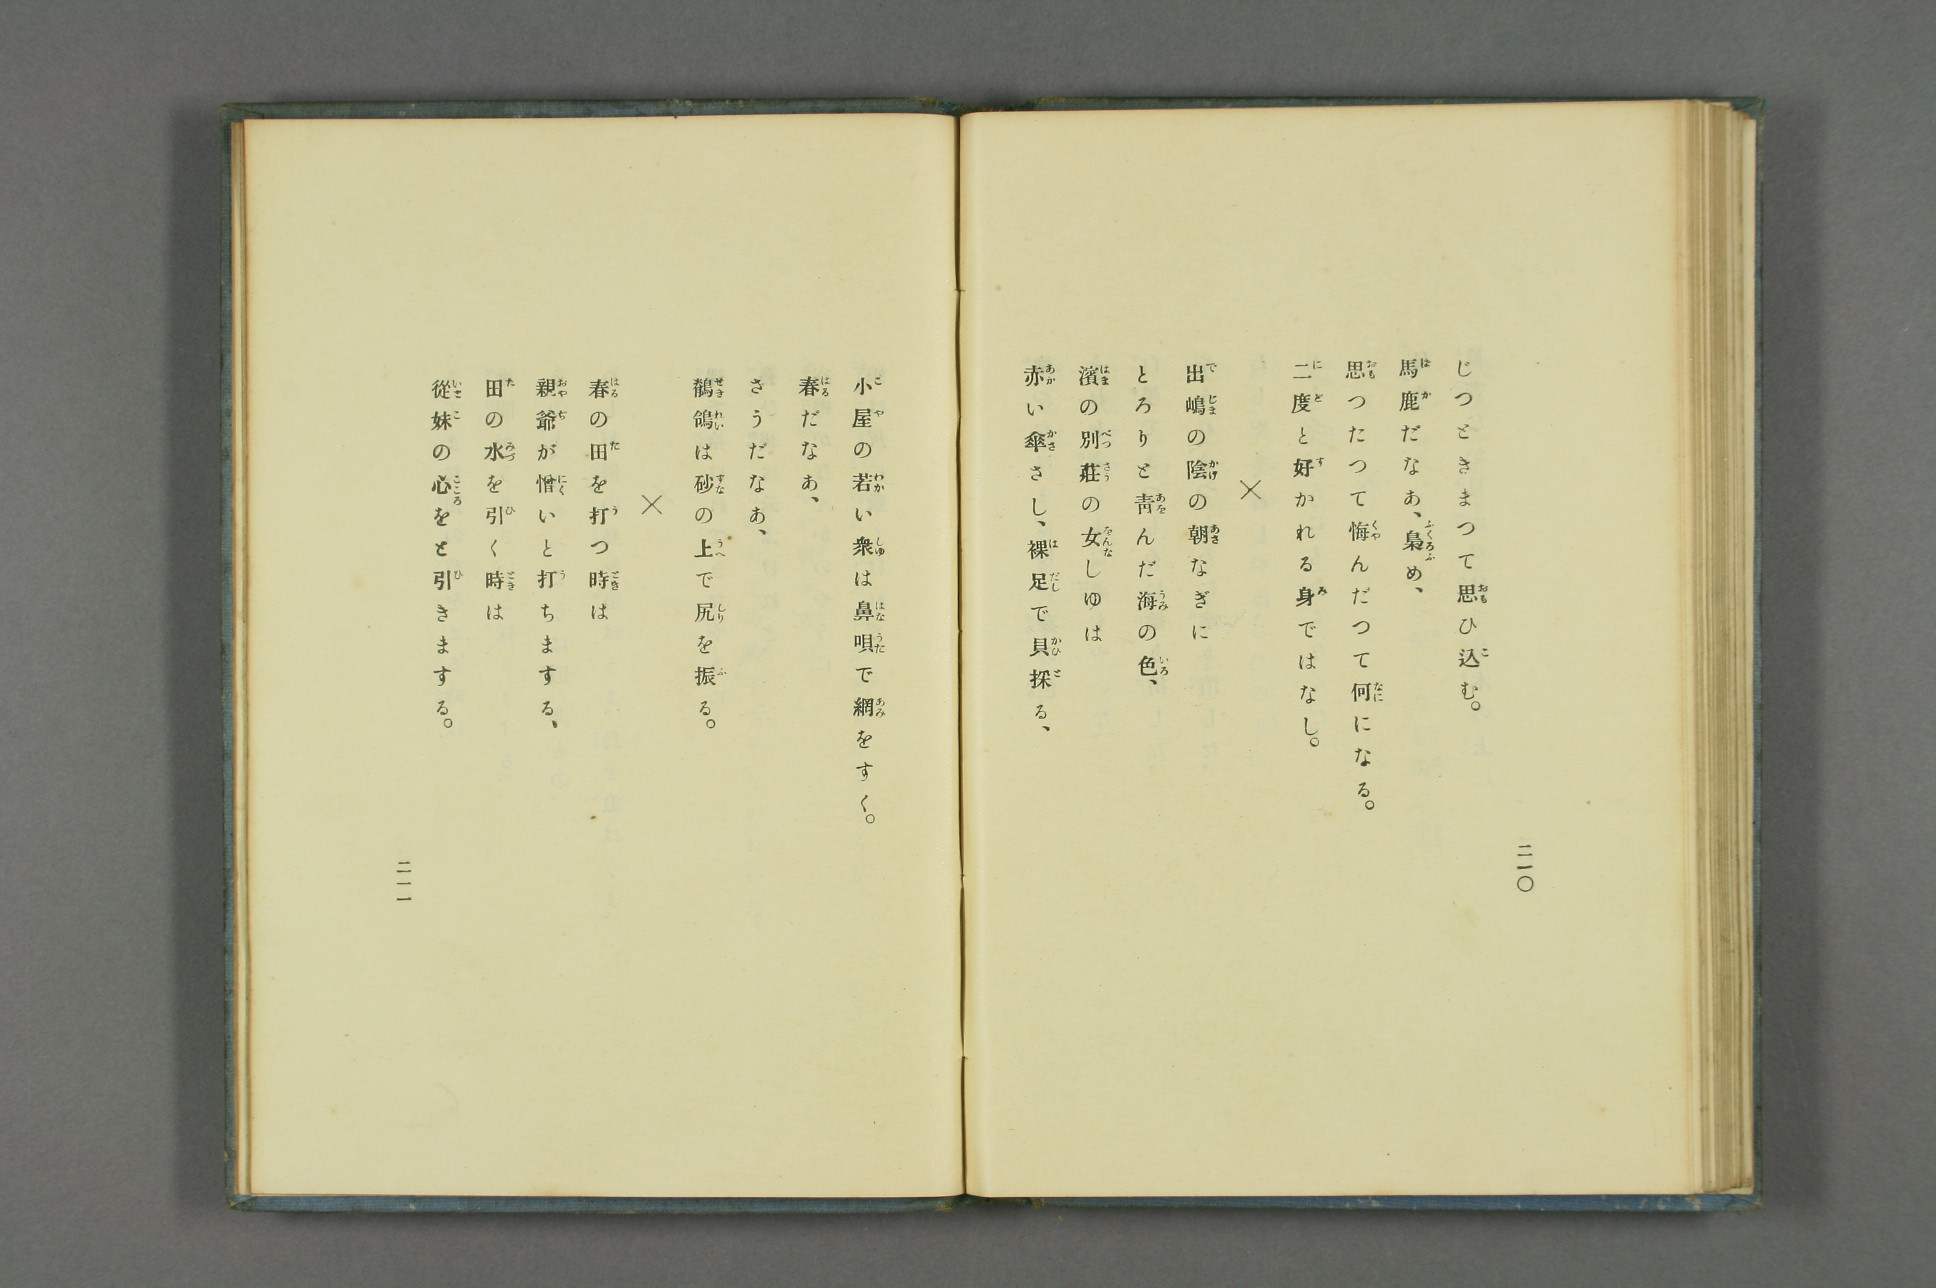 じつときまつて思ひ込む。
馬鹿だなあ、梟め、
思つたつて悔んだつて何になる。
二度と好かれる身ではなし。
×
出嶋の陰の朝なぎに
とろりと靑んだ海の色、
濱の別莊の女しゆは
赤い傘さし、裸足で貝採る、
二一〇
小屋の若い衆は鼻唄で網をすく。
春だなあ、
さうだなあ、
鶺鴒は砂の上で尻を振る。
×
春の田を打つ時は
親爺が憎いと打ちまする、
田の水を引く時は
從妹の心をと引きまする。
二一一